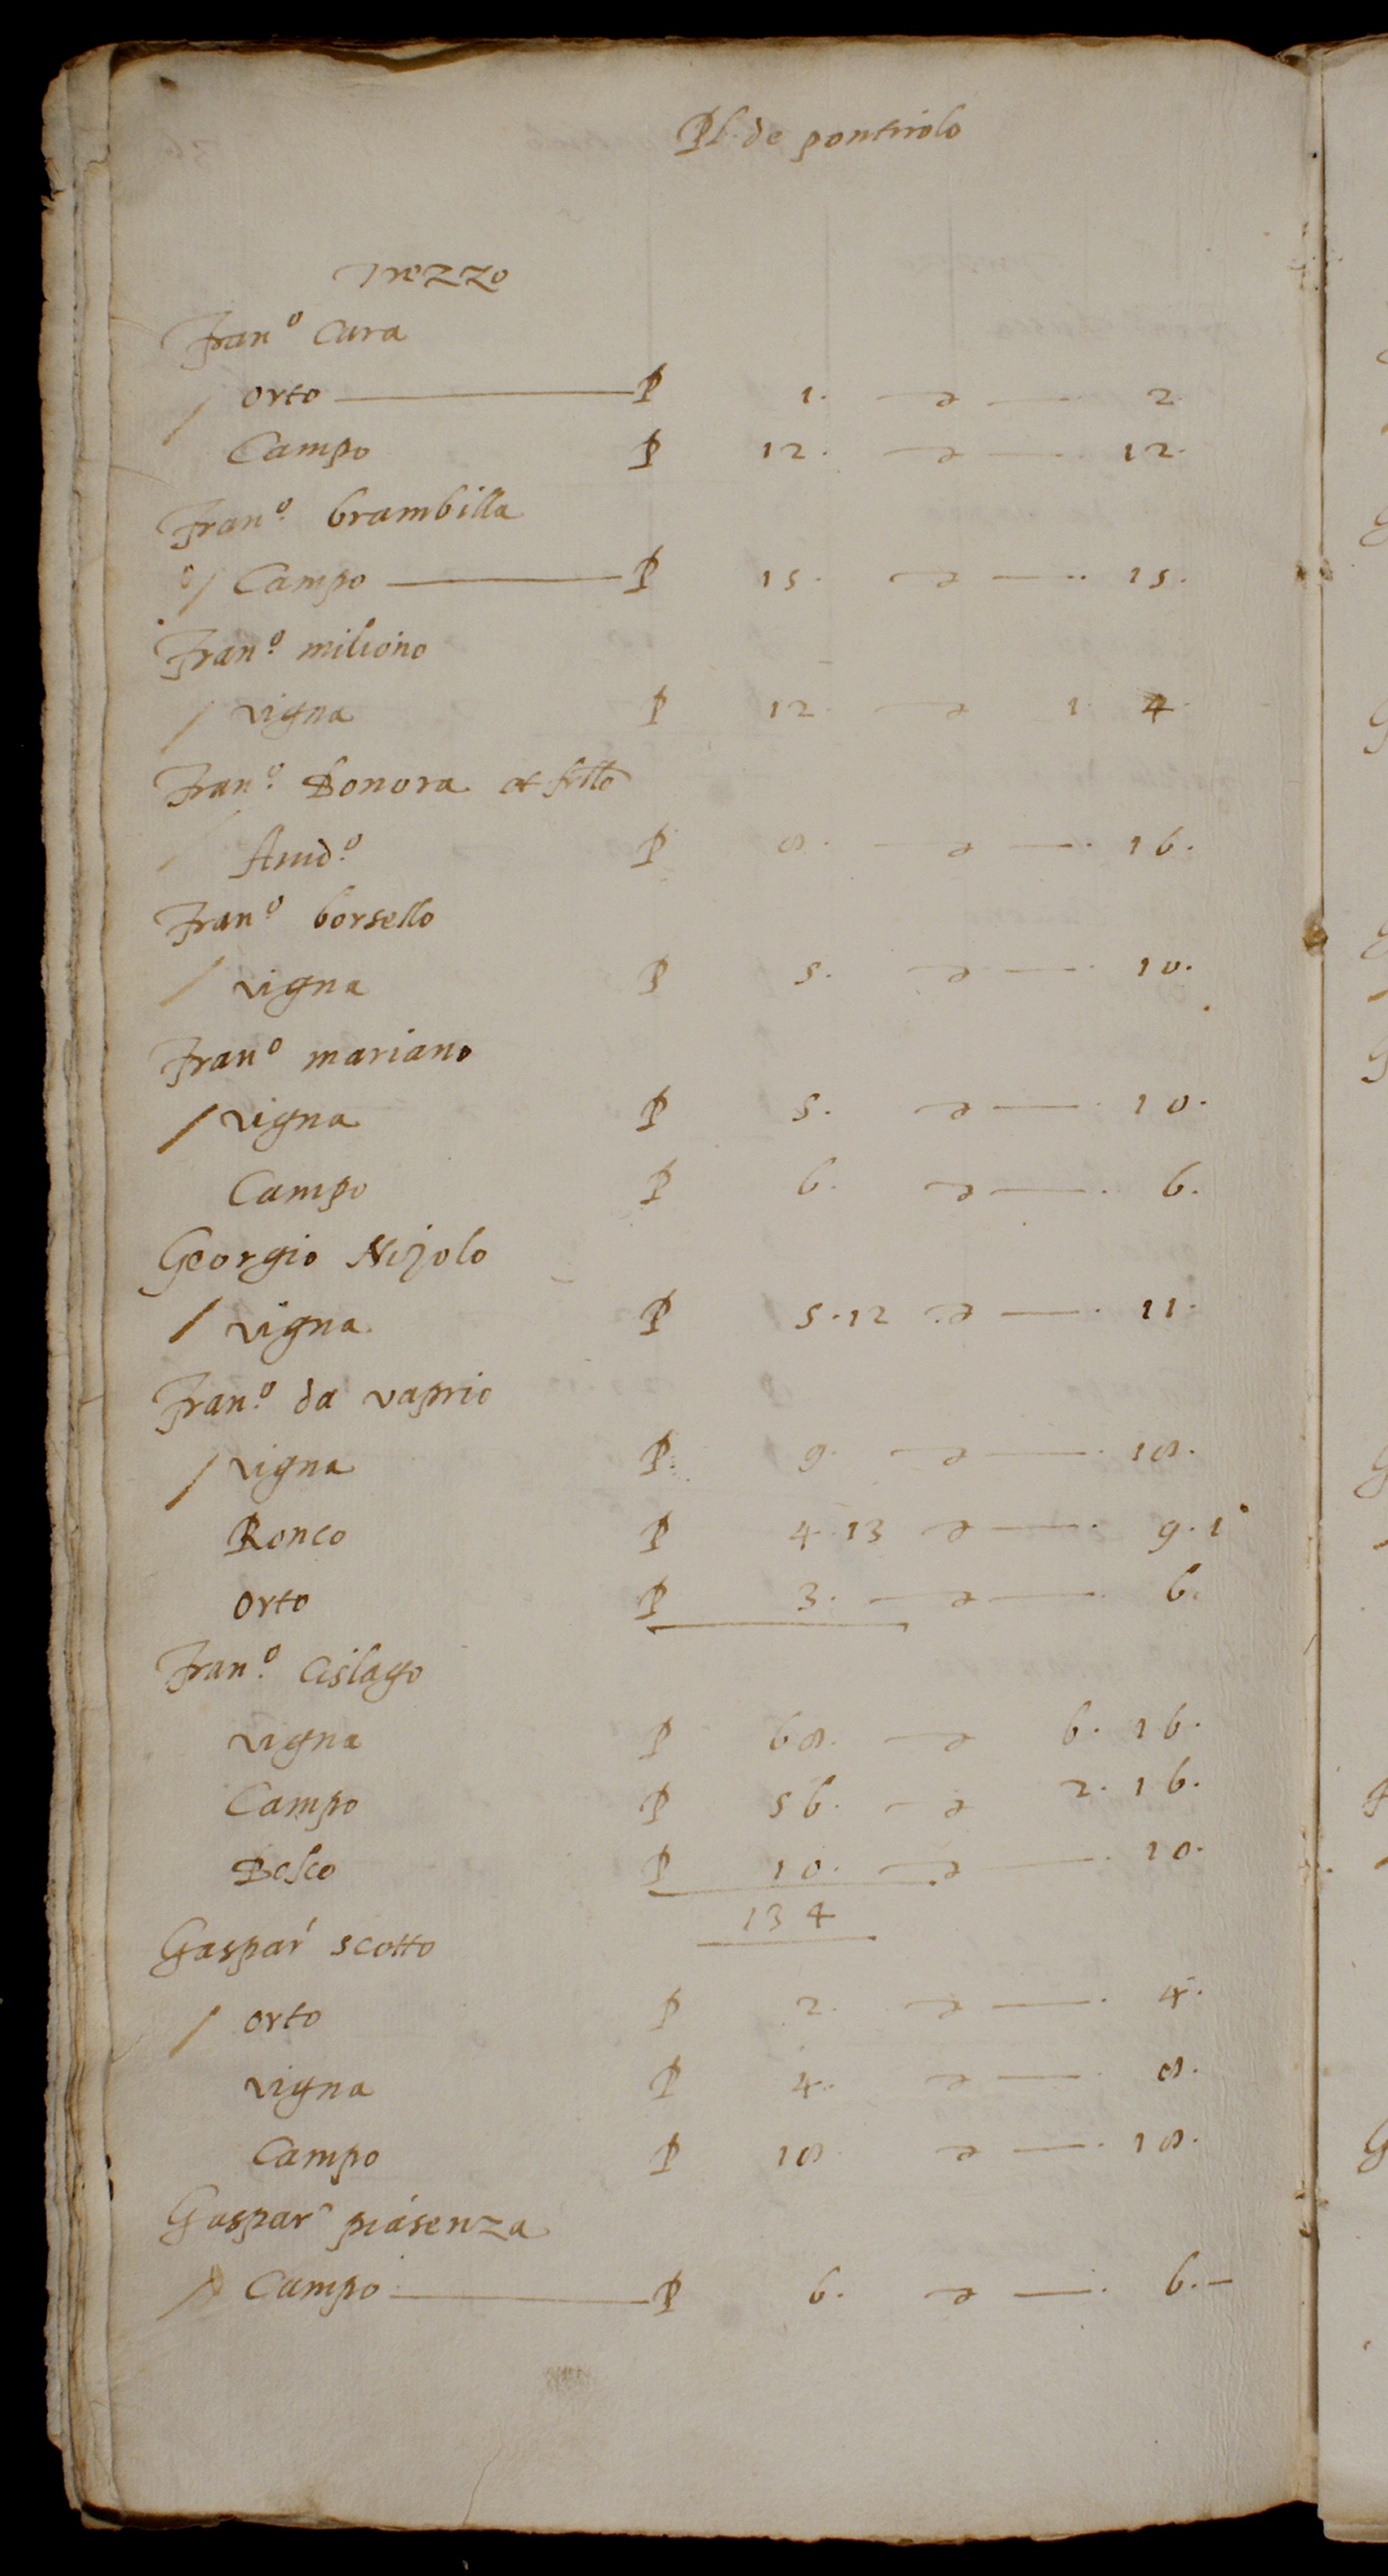 Pl. de pontirolo
Trezzo
Fran.o Cura
/ orto ——— P 1. — d — 2.
Campo P 12. — d — 12.
Fran.o brambilla
o/ Campo ——— P 15. — d — 15.
Fran.o miliono
/ vigna P 12. — d 1. 4.
Fran.o Bonora et frllo
/ P 8. — d — 16.
Fran.o borsello
/ vigna P 5. — d — 10.
Fran.o mariano
/ vigna P 5. — d — 10.
Campo P 6. — d — 6.
Georgio Nijolo
/ vigna P 5.12 — d — 11.
Fran.o da vaprio
/ vigna P 9. — d — 18.
Ronco P 4.13 — d — 9.1
orto P 3. — d — 6.
Fran.o Cislago
vigna P 68. — d 6. 16.
Campo P 56. — d 2. 16.
Bosco P 10. — d — 10.
134
Gaspar scotto
/ orto P 2. — d — 4.
vigna P 4. — d — 8.
Campo P 18 — d — 18.
Gaspar piasenza
/ Campo ——— P 6. — d — 6.—